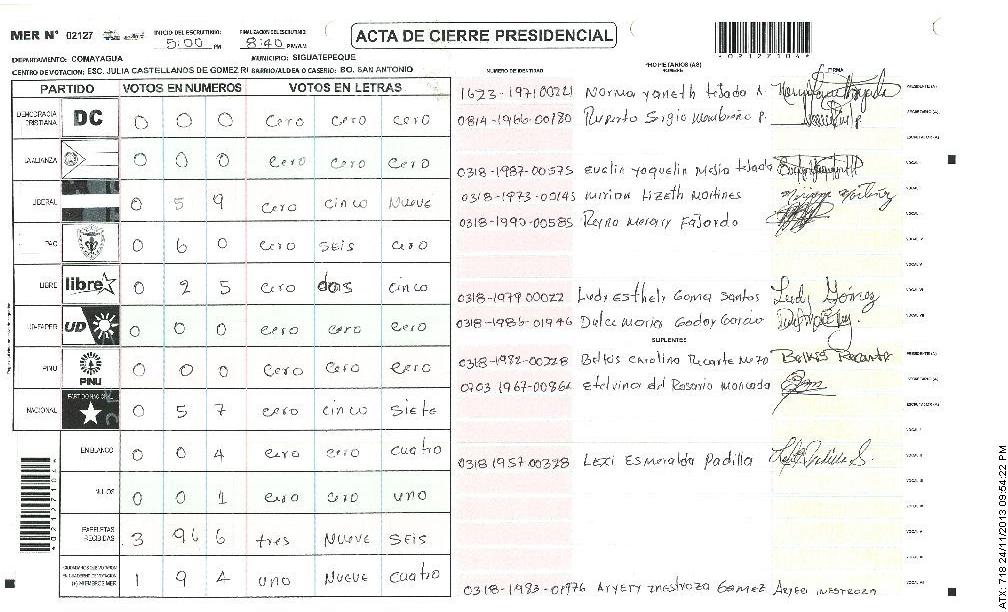 MER N° 02127
INICIO DEL ESCRUTINIO: 5:00 PM
FINALIZACION DEL ESCRUTINIO 8:40 PM/AM
ACTA DE CIERRE PRESIDENCIAL
DEPARTAMENTO: COMAYAGUA MUNICIPIO: SIGUATEPEQUE
CENTRO DE VOTACION: ESC. JULIA CASTELLANOS DE GOMEZ R BARRIO/ALDEA O CASERIO: BO. SAN ANTONIO
PARTIDO VOTOS EN NUMEROS VOTOS EN LETRAS
DEMOCRACIA CRISTIANA DC 0 0 0 cero cero cero
LA ALIANZA 0 0 0 cero cero cero
LIBERAL 0 5 9 cero cinco Nueve
PAC 0 6 0 cero SEIS cero
LIBRE libre 0 2 5 cero dos cinco
UD-FAPER UD 0 0 0 cero cero cero
PINU PINU 0 0 0 cero cero cero
NACIONAL PARTIDO NACIONAL 0 5 7 cero cinco Siete
EN BLANCO 0 0 4 cero cero cuatro
NULOS 0 0 1 cero cero uno
PAPELETAS RECIBIDAS 3 9 6 tres Nueve SEIS
1 9 4 uno Nueve cuatro
NUMERO DE IDENTIDAD
PROPIETARIOS (AS)
NOMBRE
FIRMA
1623-1971-00221 Norma Yaneth tejada PRESIDENTE (A)
0814-1966-00180 Ruperto Sergio Membreño P. SECRETARIO (A)
ESCRUTADOR (A)
0318-1987-00575 Evelin Yaquelin Mejia tejada
0318-1973-00145 Mirian Lizeth Martines
0318-1990-00585 Reyna Mercary Fajardo
0318-1979 00022 Ludy Esthela Goma Santos Ludy Gómez
0318-1986-01946 Dulce Maria Godoy Garcia
SUPLENTES
0318-1982-00228 Belkis Carolina Recarte Belkis Recarte PRESIDENTE (A)
0703 1967-00866 Etelvina del Rosario Moncada SECRETARIO (A)
ESCRUTADOR (A)
0318 1957 00328 Lexi Esmeralda Padilla
0318-1983-01976 Aryery Inestroza Gomez
ATX 718 24/11/2013 09:54:22 PM